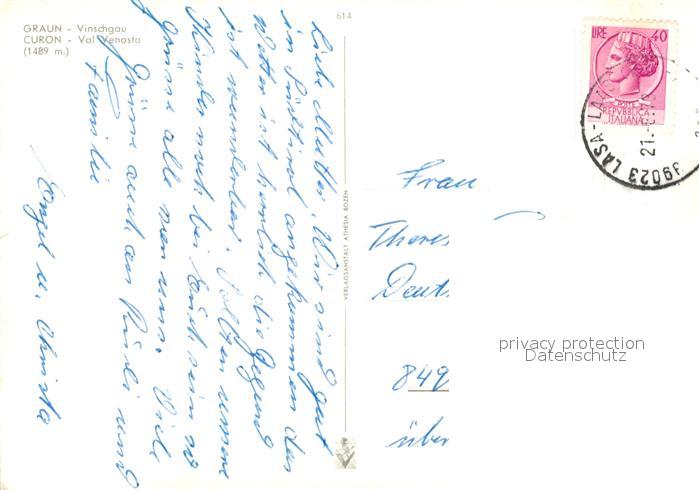 GRAUN - Vinschgau
CURON - Val Venosta
(1489 m.)
614
Liebe Mutter, Wir sind gut
in Südtirol angekommen das
Wetter ist herrlich die Gegend
ist wunderbar. Sollten unsere
Kinder noch bei Euch sein so
grüsse alle von uns. Viele
Grüsse auch an Rudi und
Familie
Engel u. Christa
VERLAGSANSTALT ATHESIA BOZEN
LIRE 40
POSTE
REPVBBLICA
ITALIANA
39023 LASA-LA
21.
Frau
Theres
Deut
849
über
privacy protection
Datenschutz